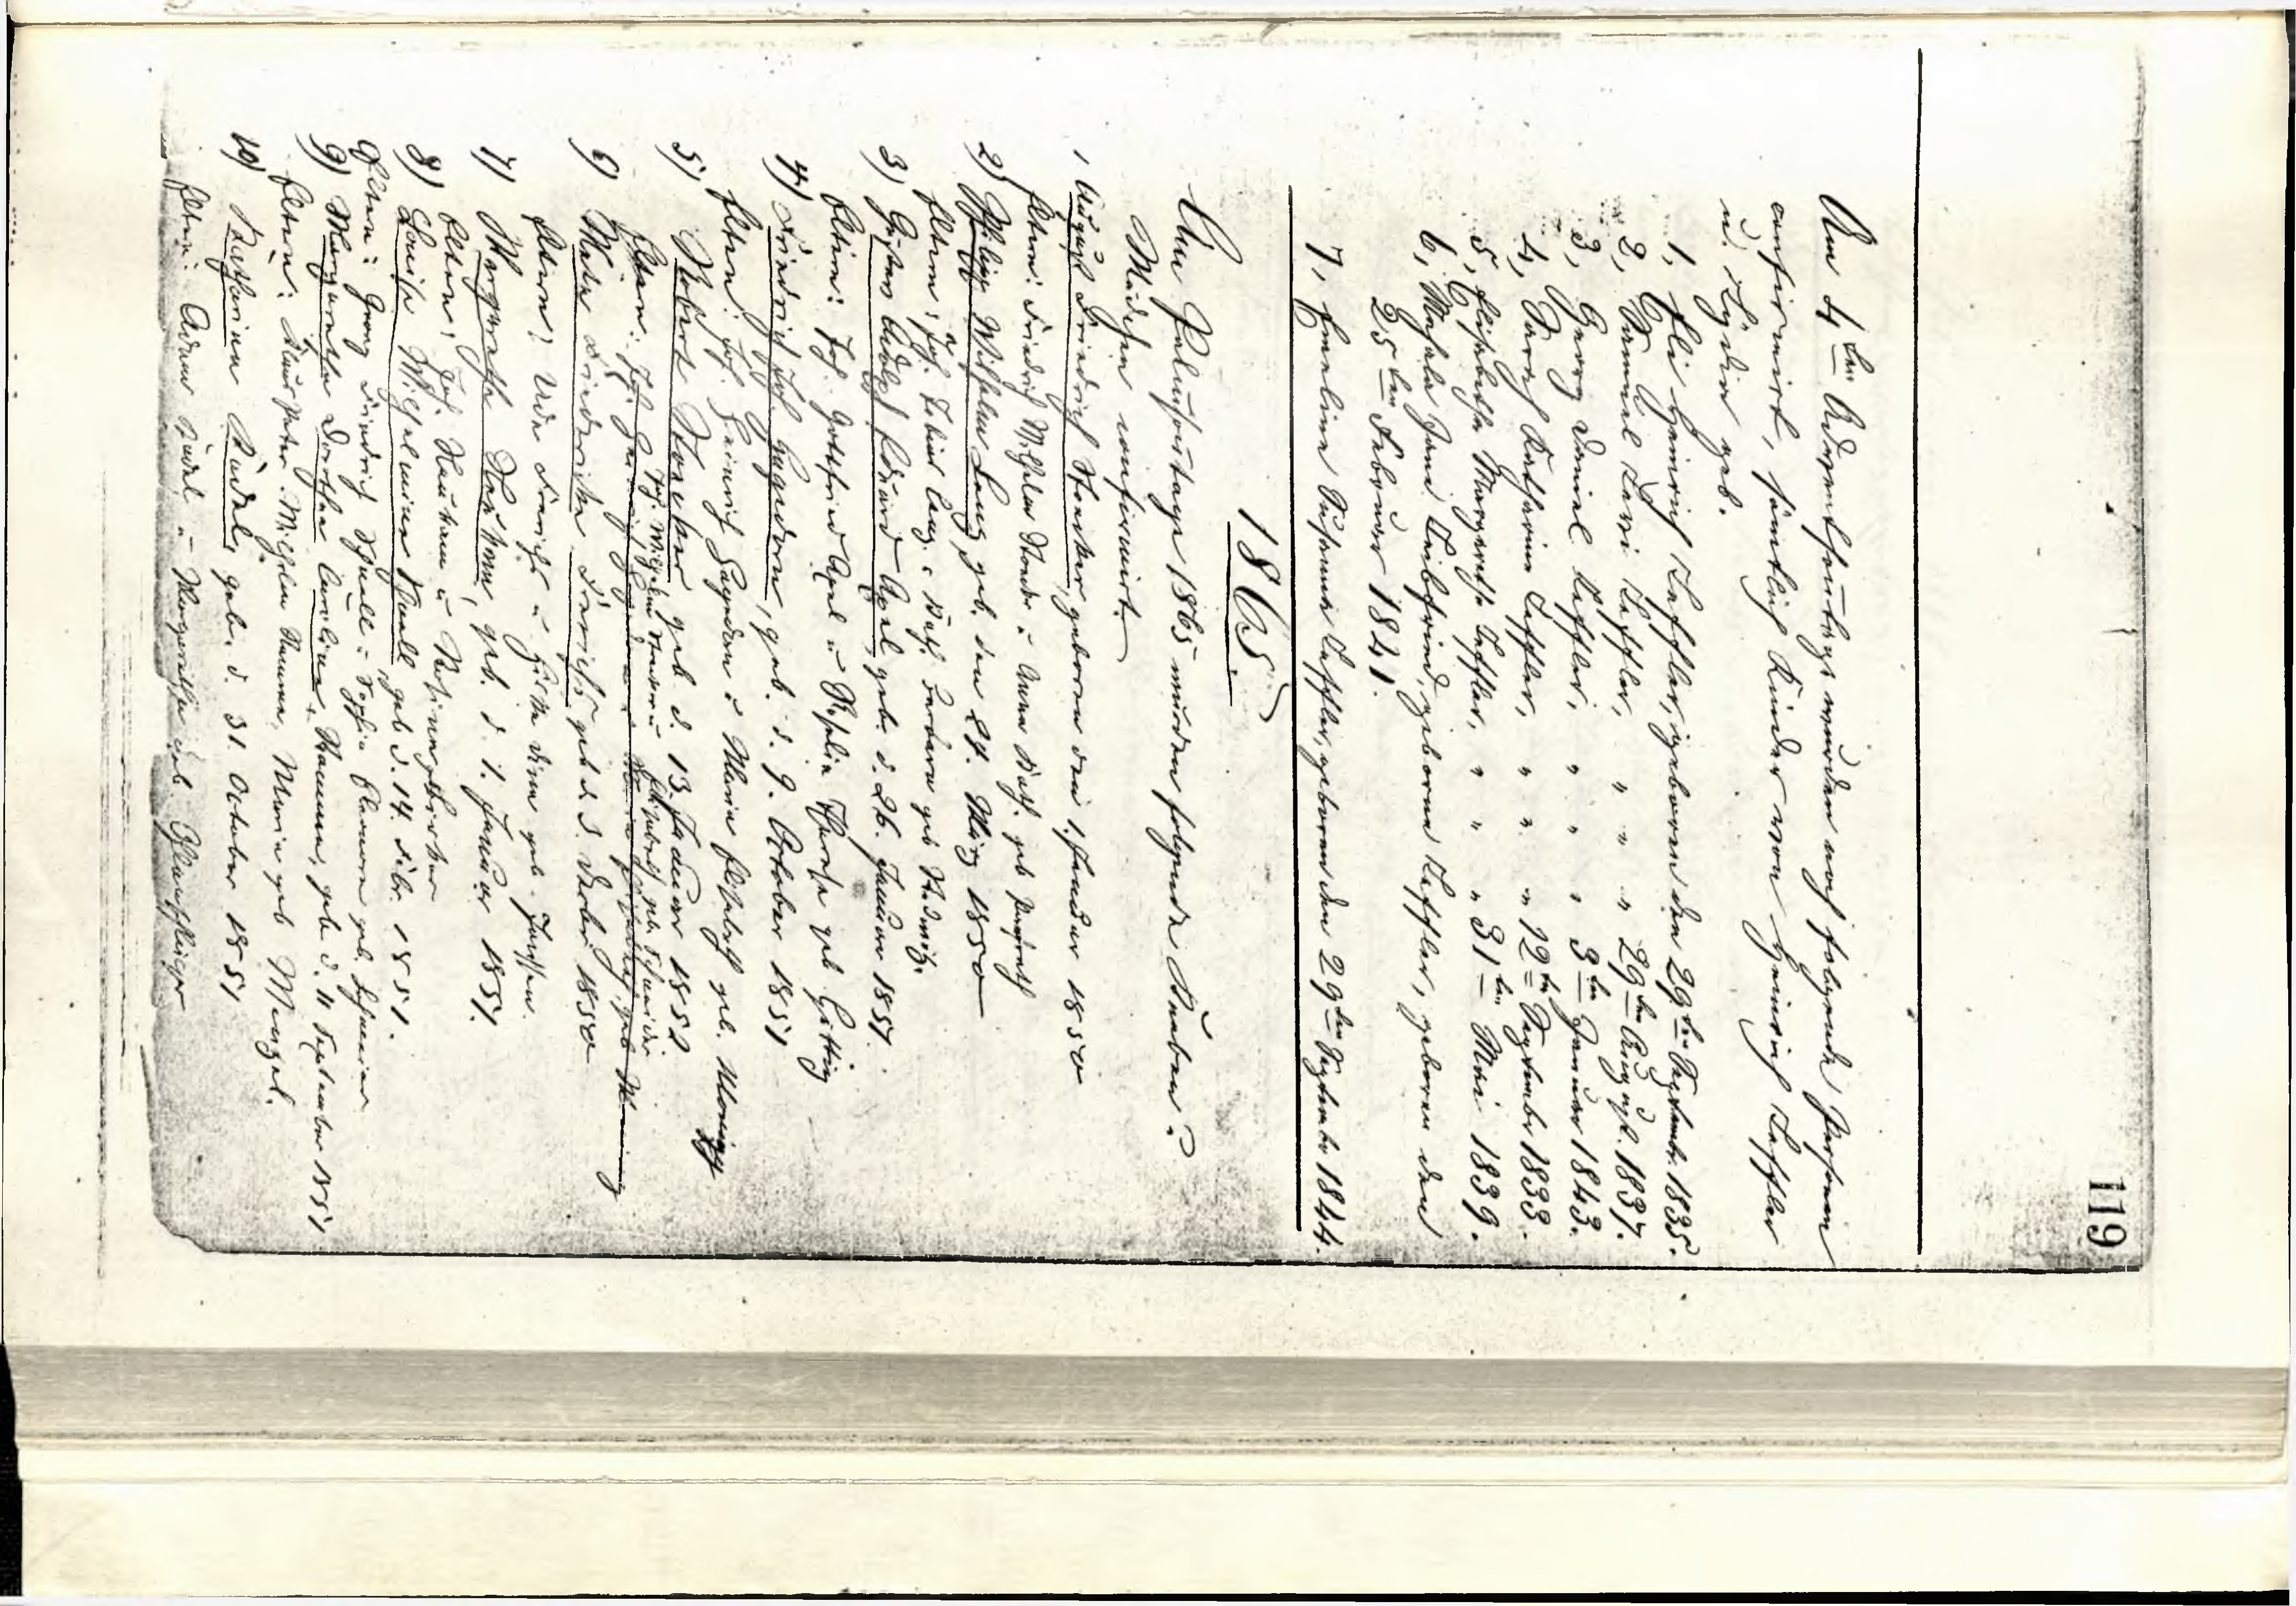 119
Am 4ten Adventsonntage wurden noch folgende Personen
confirmirt, sämtlich Kinder von Heinrich Leffler
u. Lydia geb.
1, Eli Heinrich Leffler, geboren den 29ten Septembr. 1835.
2, Samuel Levi Leffler, " " " 29ten August. 1837.
3, Georg Daniel Leffler, " " " 3ten Januar 1843.
4, Sarah Katharina Leffler, " " " 12ten Septembr 1833.
5, Elisabetha Margaretha Leffler, " " " 31ten Mai 1839.
6, Mahala Jane Leibfried, geborne Leffler, geboren den
25ten Februar 1841.
7, Emeline Susanna Leffler, geboren den 29ten Septembr 1844.
1865.
Am Palmsontage 1865 wurden folgende Knaben u.
Mädchen confirmirt.
1 August Friedrich Stencker, geboren den 1. Januar 1850
Eltern: Friedrich Wilhelm u. Anna Kath. geb
2) Philipp Wilhelm Lang geb. den 24. März 1850
Eltern, Joh. Tobias Lang, u Kath. Barbara geb
3) Gustav Adolph Eduard Apel geb. d. 26. Januar 1851.
Eltern: Joh. Gottfried Apel u Rosalia Therese geb Hettig
4) Friedrich Joh. Hagedorn, geb. d. 9. October 1851
Eltern: Joh. Heinrich Hagedorn u Maria Elisabeth geb.
5) Robert geb d. 13. Januar 1852
Joh. Wilhelm u Elisabeth geb. Schneider
Eltern: Joh. Hagedorn u Maria Elisabeth geb
6) Meta Friedericke Frerichs geb d. 3. 1850
Eltern: Ude Frerichs u geb. Janssen.
7) Margaretha, geb. d. 1. Januar 1851.
Eltern: Joh. u
8) Louise Wilhelmine Knall geb d. 14. Febr. 1851.
Eltern: Georg Friedrich Knall u Sophia geb.
9) Margaretha Dorothea Caroline Hamann, geb. d. 11 September 1851
Eltern: Claus Peter Wilhelm Hamann, Maria geb Menzel.
10) Katharina Rudel, geb. d. 31 October 1851
Eltern: Adam Rudel u Margaretha geb